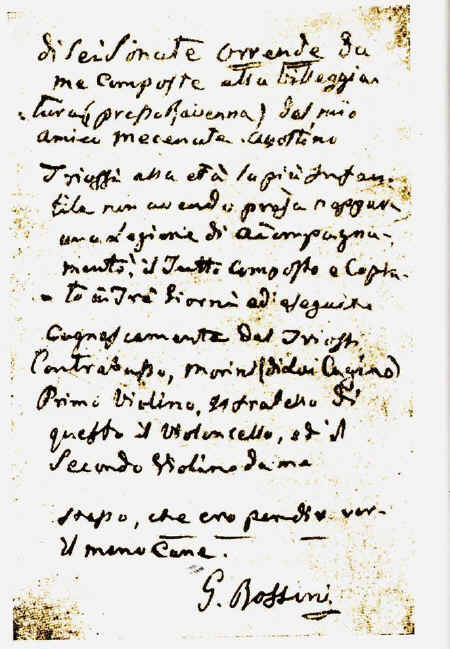 di Sei Sonate orrende da
me composte alla villeggia
tura (presso Ravenna) del mio
amico mecenate Agostino
Triossi alla età la più infan-
tile non avendo presa neppure
una Lezione di accompagna-
mento, il Tutto composto e Copia-
to in Tre Giorni ed eseguito
Cagnescamente dal Triossi
Contrabasso, Morini (di Lui Cugino)
Primo Violino, il fratello di
questo il Violoncello, ed il
Secondo Violino da me
stesso, che ero per dir ver-
il meno Cane.
G. Rossini